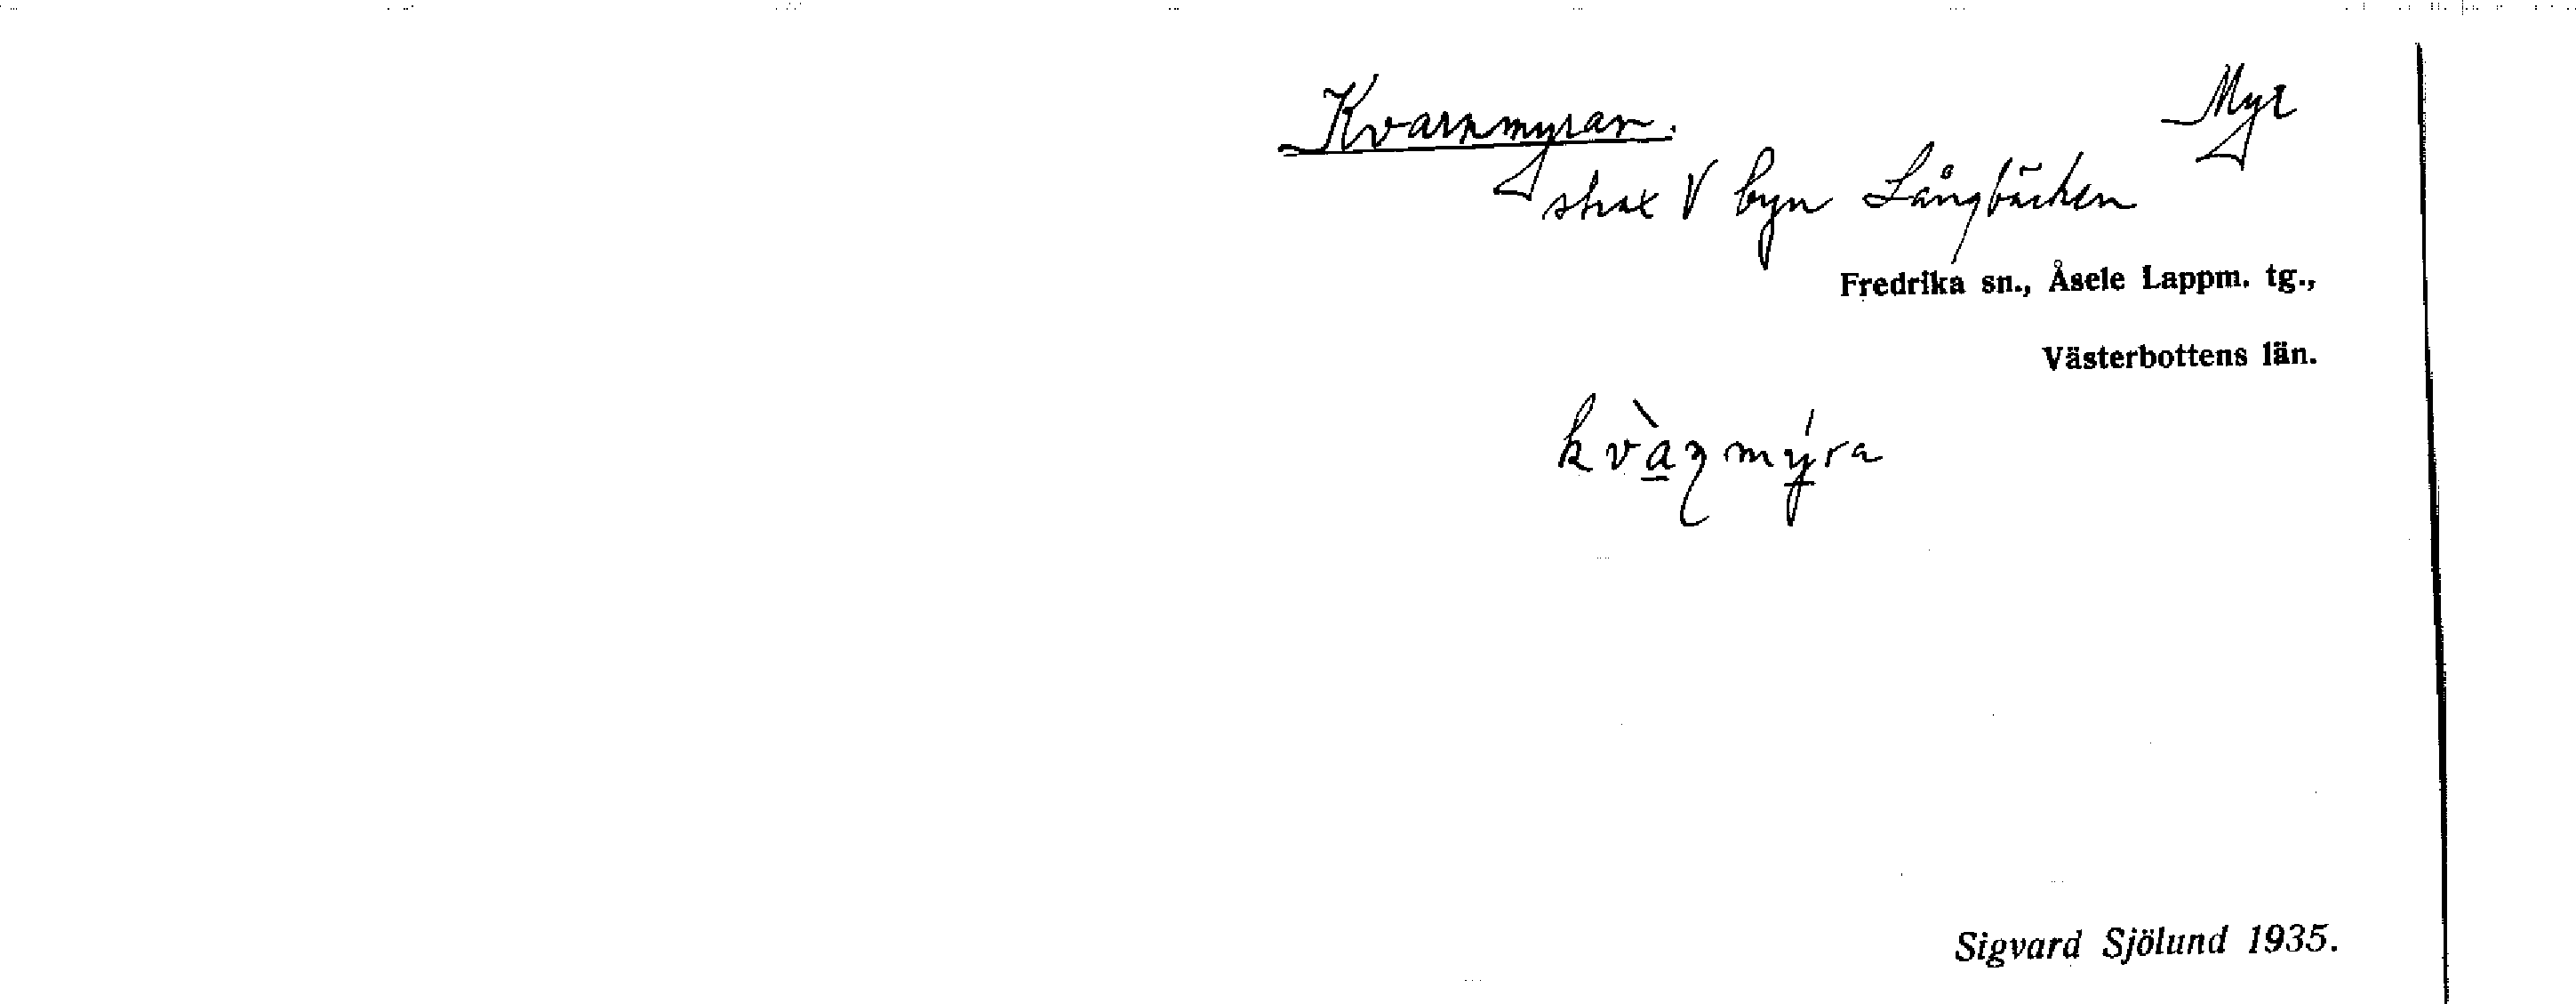 Kvarnmyran. Myr
strax V byn Långbäcken
Fredrika sn., Åsele Lappm. tg.,
Västerbottens län.
kvàɳmy̍ra
Sigvard Sjölund 1935.